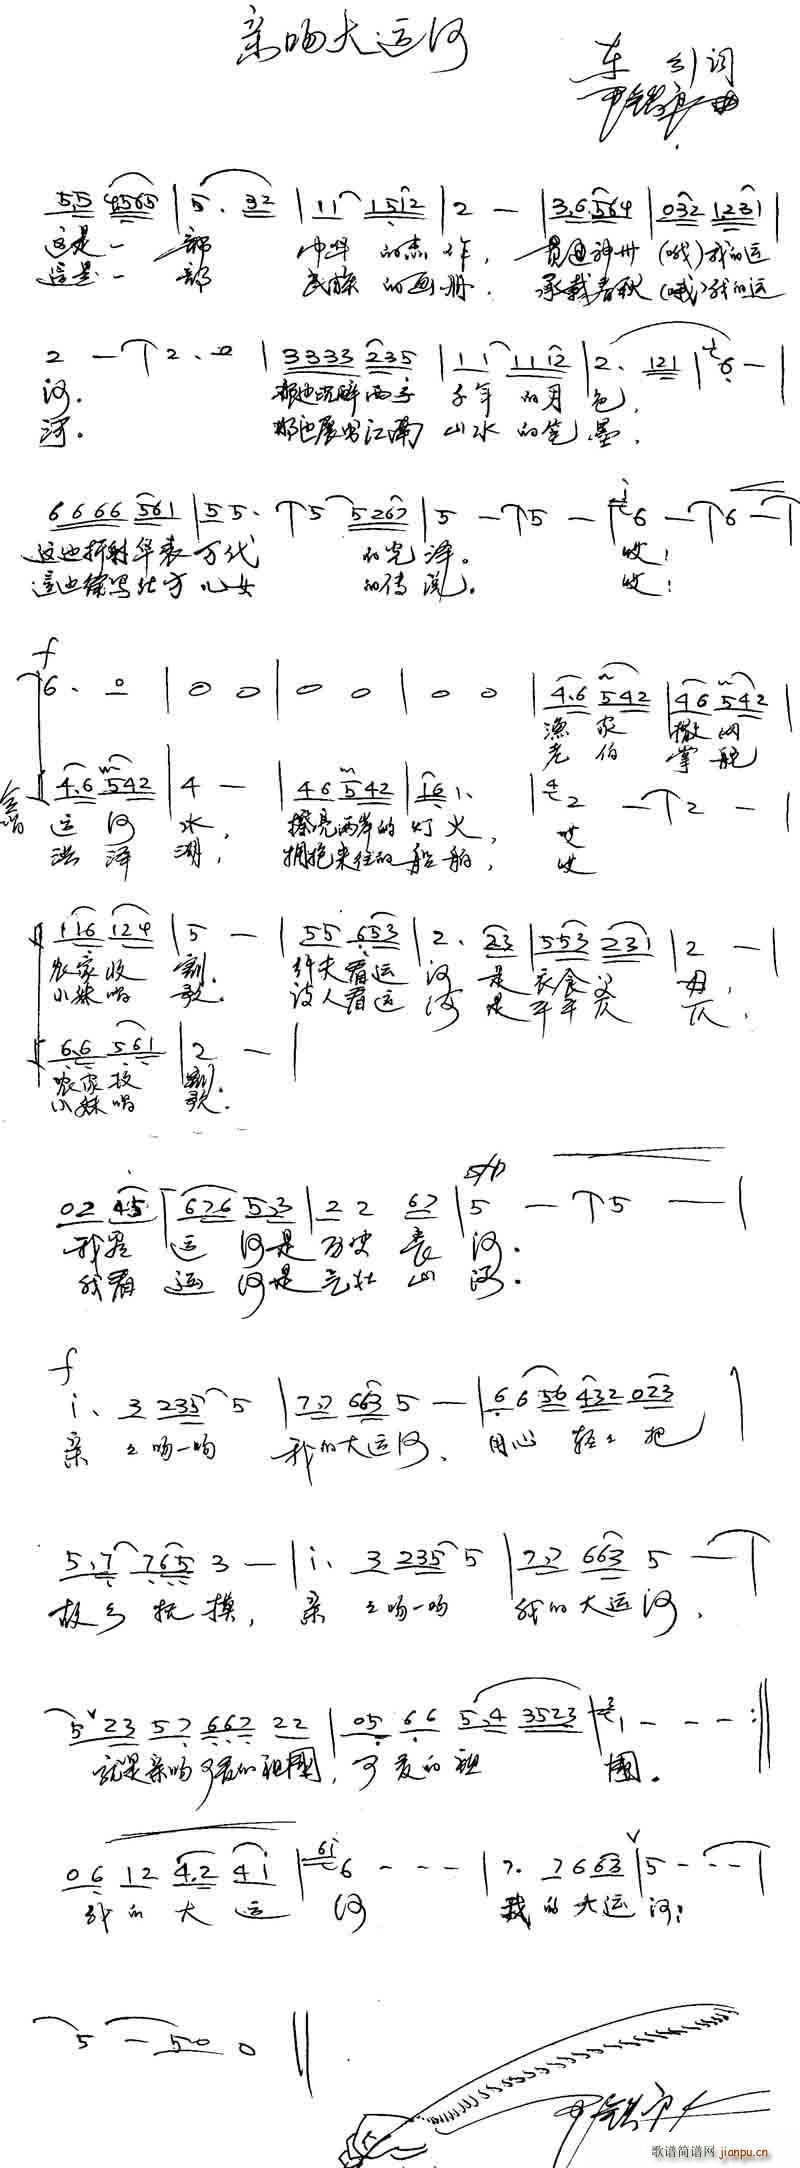 亲吻大运河
车 引 词
尹铁良 曲
5.5 4565 | 5. 32 | 11 1512 | 2 — | 3.6 564 | 032 1231 |
这是一 部 中华 的杰作, 贯通神州 (哦)我的运
这是一 部 民族 的画册. 承载春秋 (哦)我的运
2 — | 2. 0 | 3333 235 | 11 1112 | 2. 121 | 6 — |
河. 那也沉醉两岸 千年 的月色,
河. 那也展出江南 山水 的笔墨,
6666 561 | 55. | 5 5267 | 5 — | 5 — | 6 — | 6 — |
这也折射华表万代 的光泽。 哎!
这也续写北方儿女 的传说. 哎!
f
6. 0 | 0 0 | 0 0 | 0 0 | 4.6 542 | 46 542 |
渔家 撒网
老伯 掌舵
4.6 542 | 4 — | 46 542 | 16 1. | 2 — | 2 — |
运河水, 擦亮两岸的灯火, 哎
洪泽湖, 拥抱来往的船舶, 哎
116 124 | 5 — | 55 653 | 2. 23 | 553 231 | 2 — |
农家收 割. 纤夫看运 河 是衣食父 母,
小妹唱 歌. 诗人看运 河 是平平仄 仄,
6.6 561 | 2 — |
农家收 割.
小妹唱 歌.
02 45 | 676 5.3 | 22 67 | 5 — | 5 — |
我看 运 河是历史 长 河.
我看 运 河是气壮 山 河.
f
i. 3 235 5 | 7.7 663 5 — | 6 6 56 432 023 |
亲 之吻一吻 我的大运河, 用心 轻之把
5.7 765 3 — | i. 3 235 5 | 7.7 663 5 — |
故乡抚摸, 亲 之吻一吻 我的大运河,
5 23 57 667 22 | 05 66 5.4 3523 | 1 — — — :||
就是亲吻可爱的祖国, 可爱的祖 国。
06 12 4.2 4i | 6 — — — | 7. 7663 | 5 — — — |
我的大运 河 我的大运河!
5 — 50 0 ||
尹铁良
歌谱简谱网 jianpu.cn